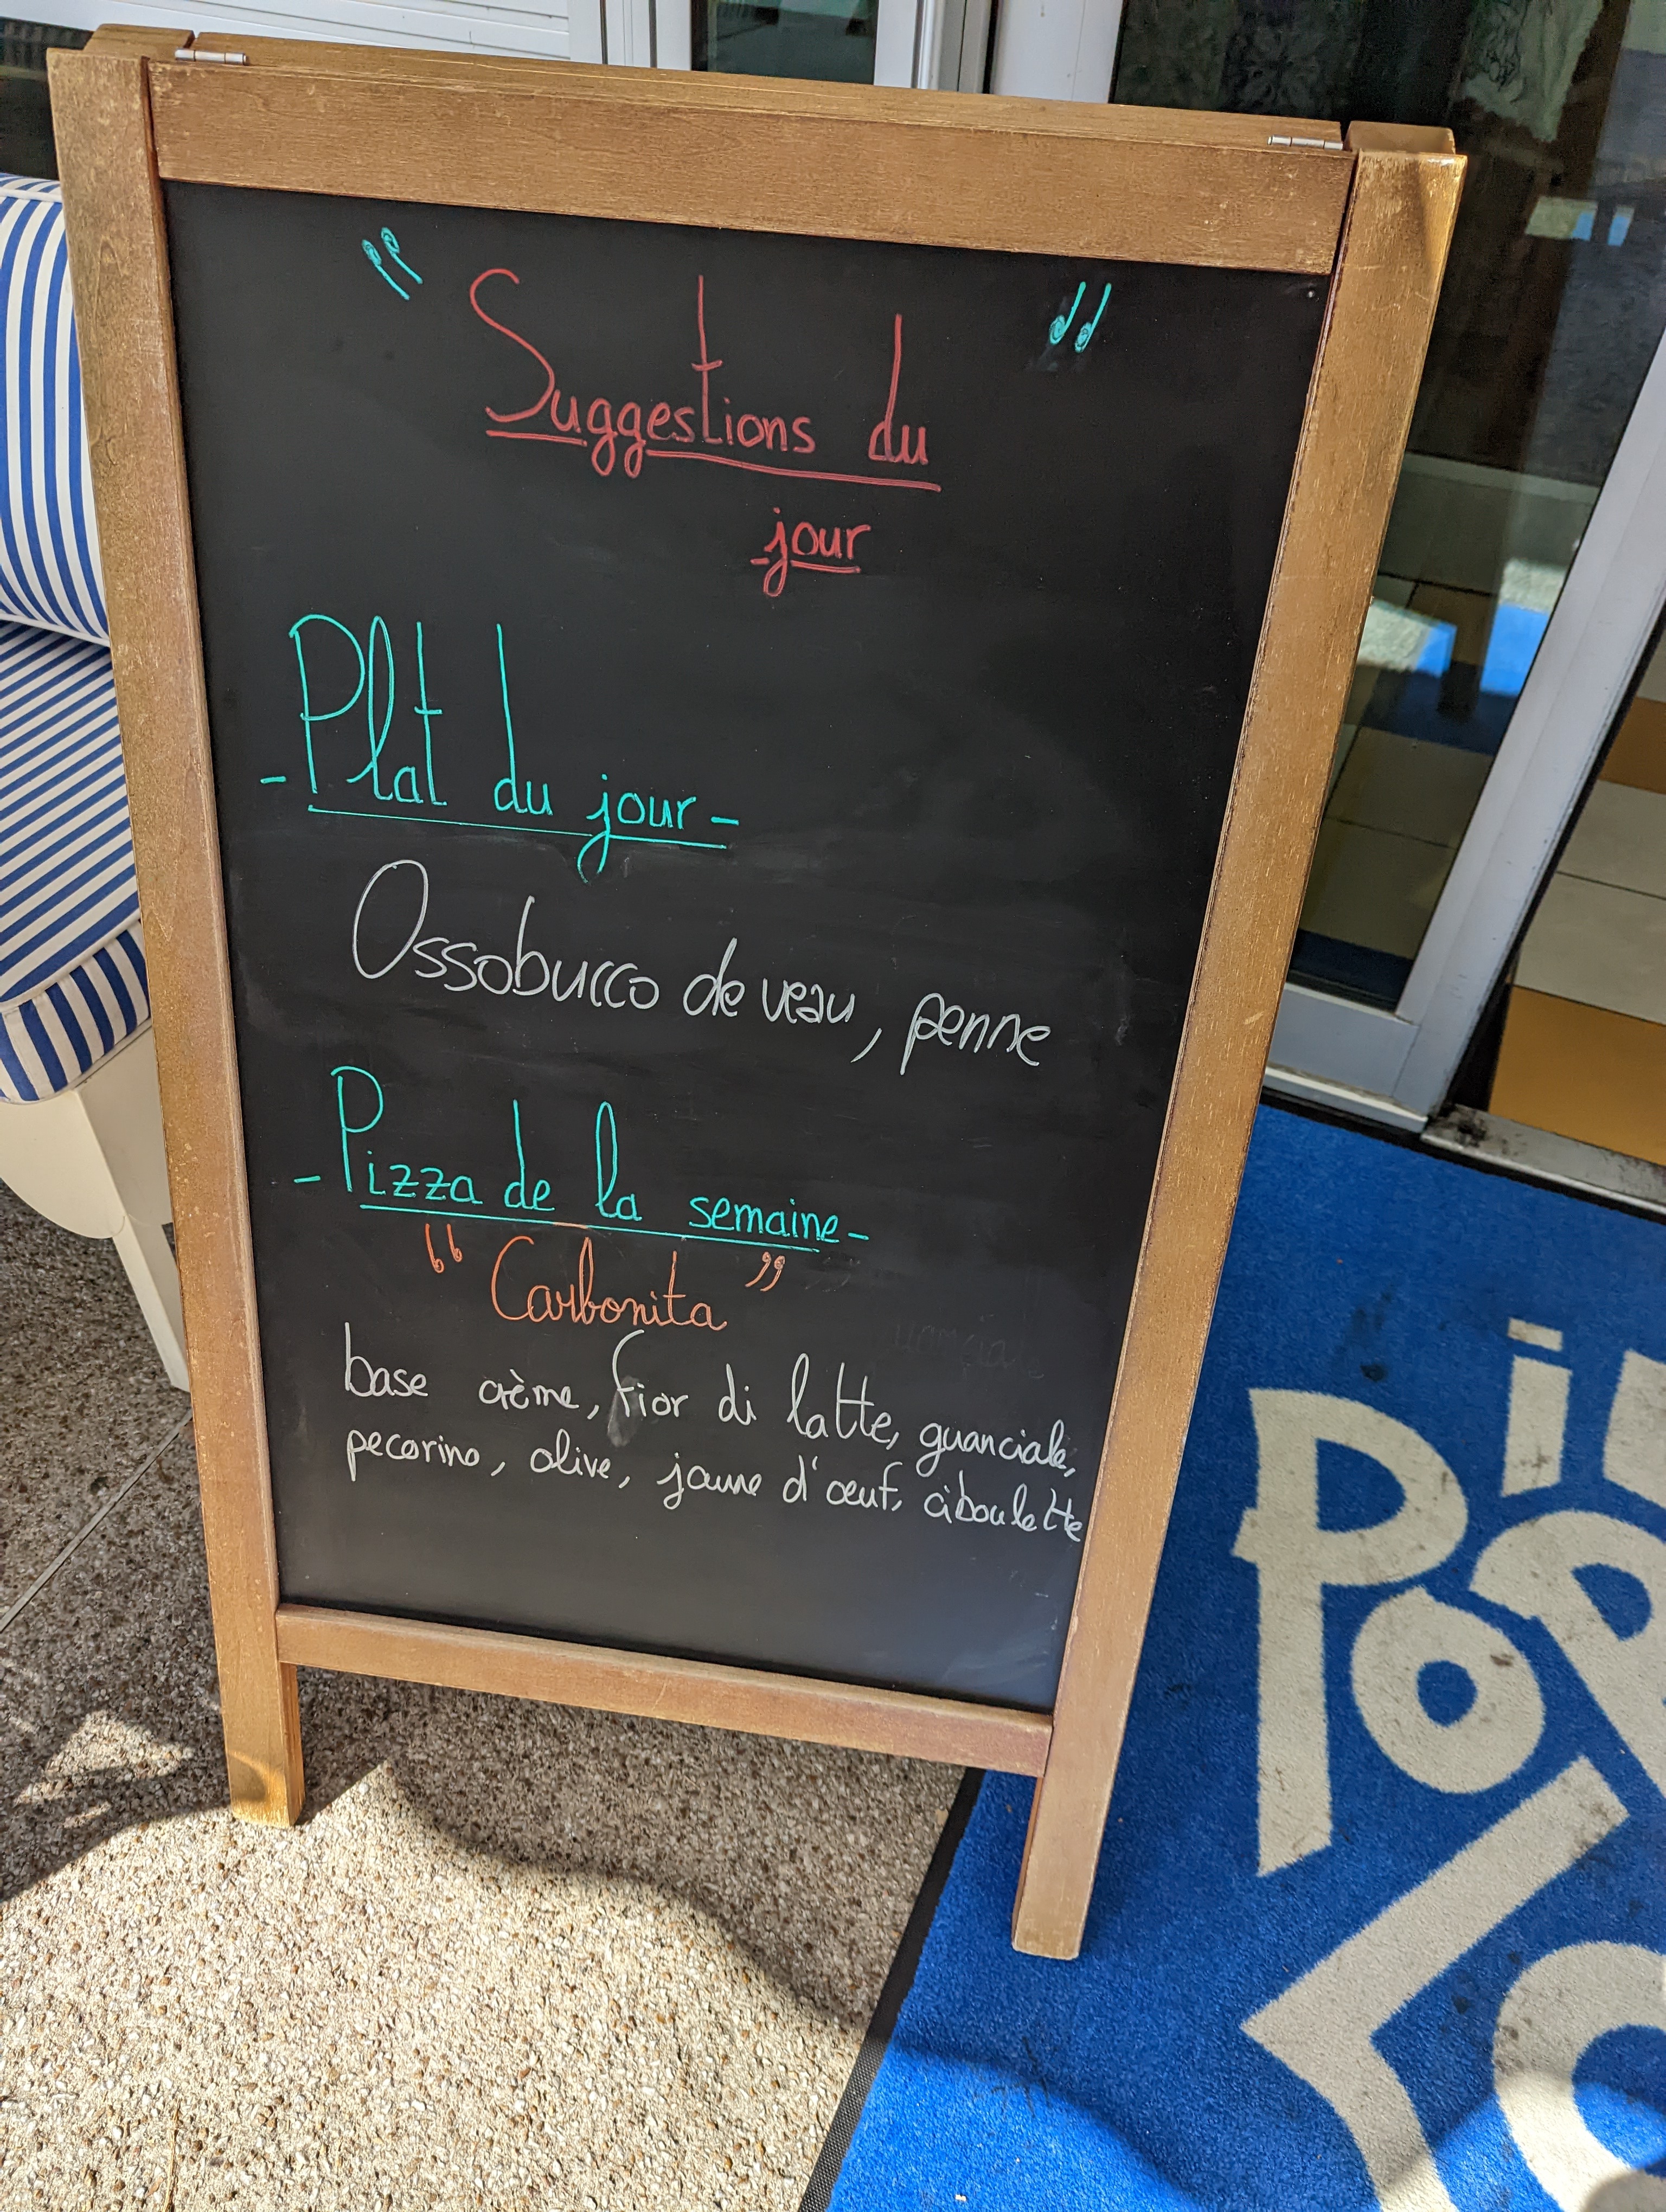 " Suggestions du "
jour
- Plat du jour -
Ossobucco de veau, penne
- Pizza de la semaine -
" Carbonita "
base crème, fior di latte, guanciale,
pecorino, olive, jaune d'œuf, ciboulette